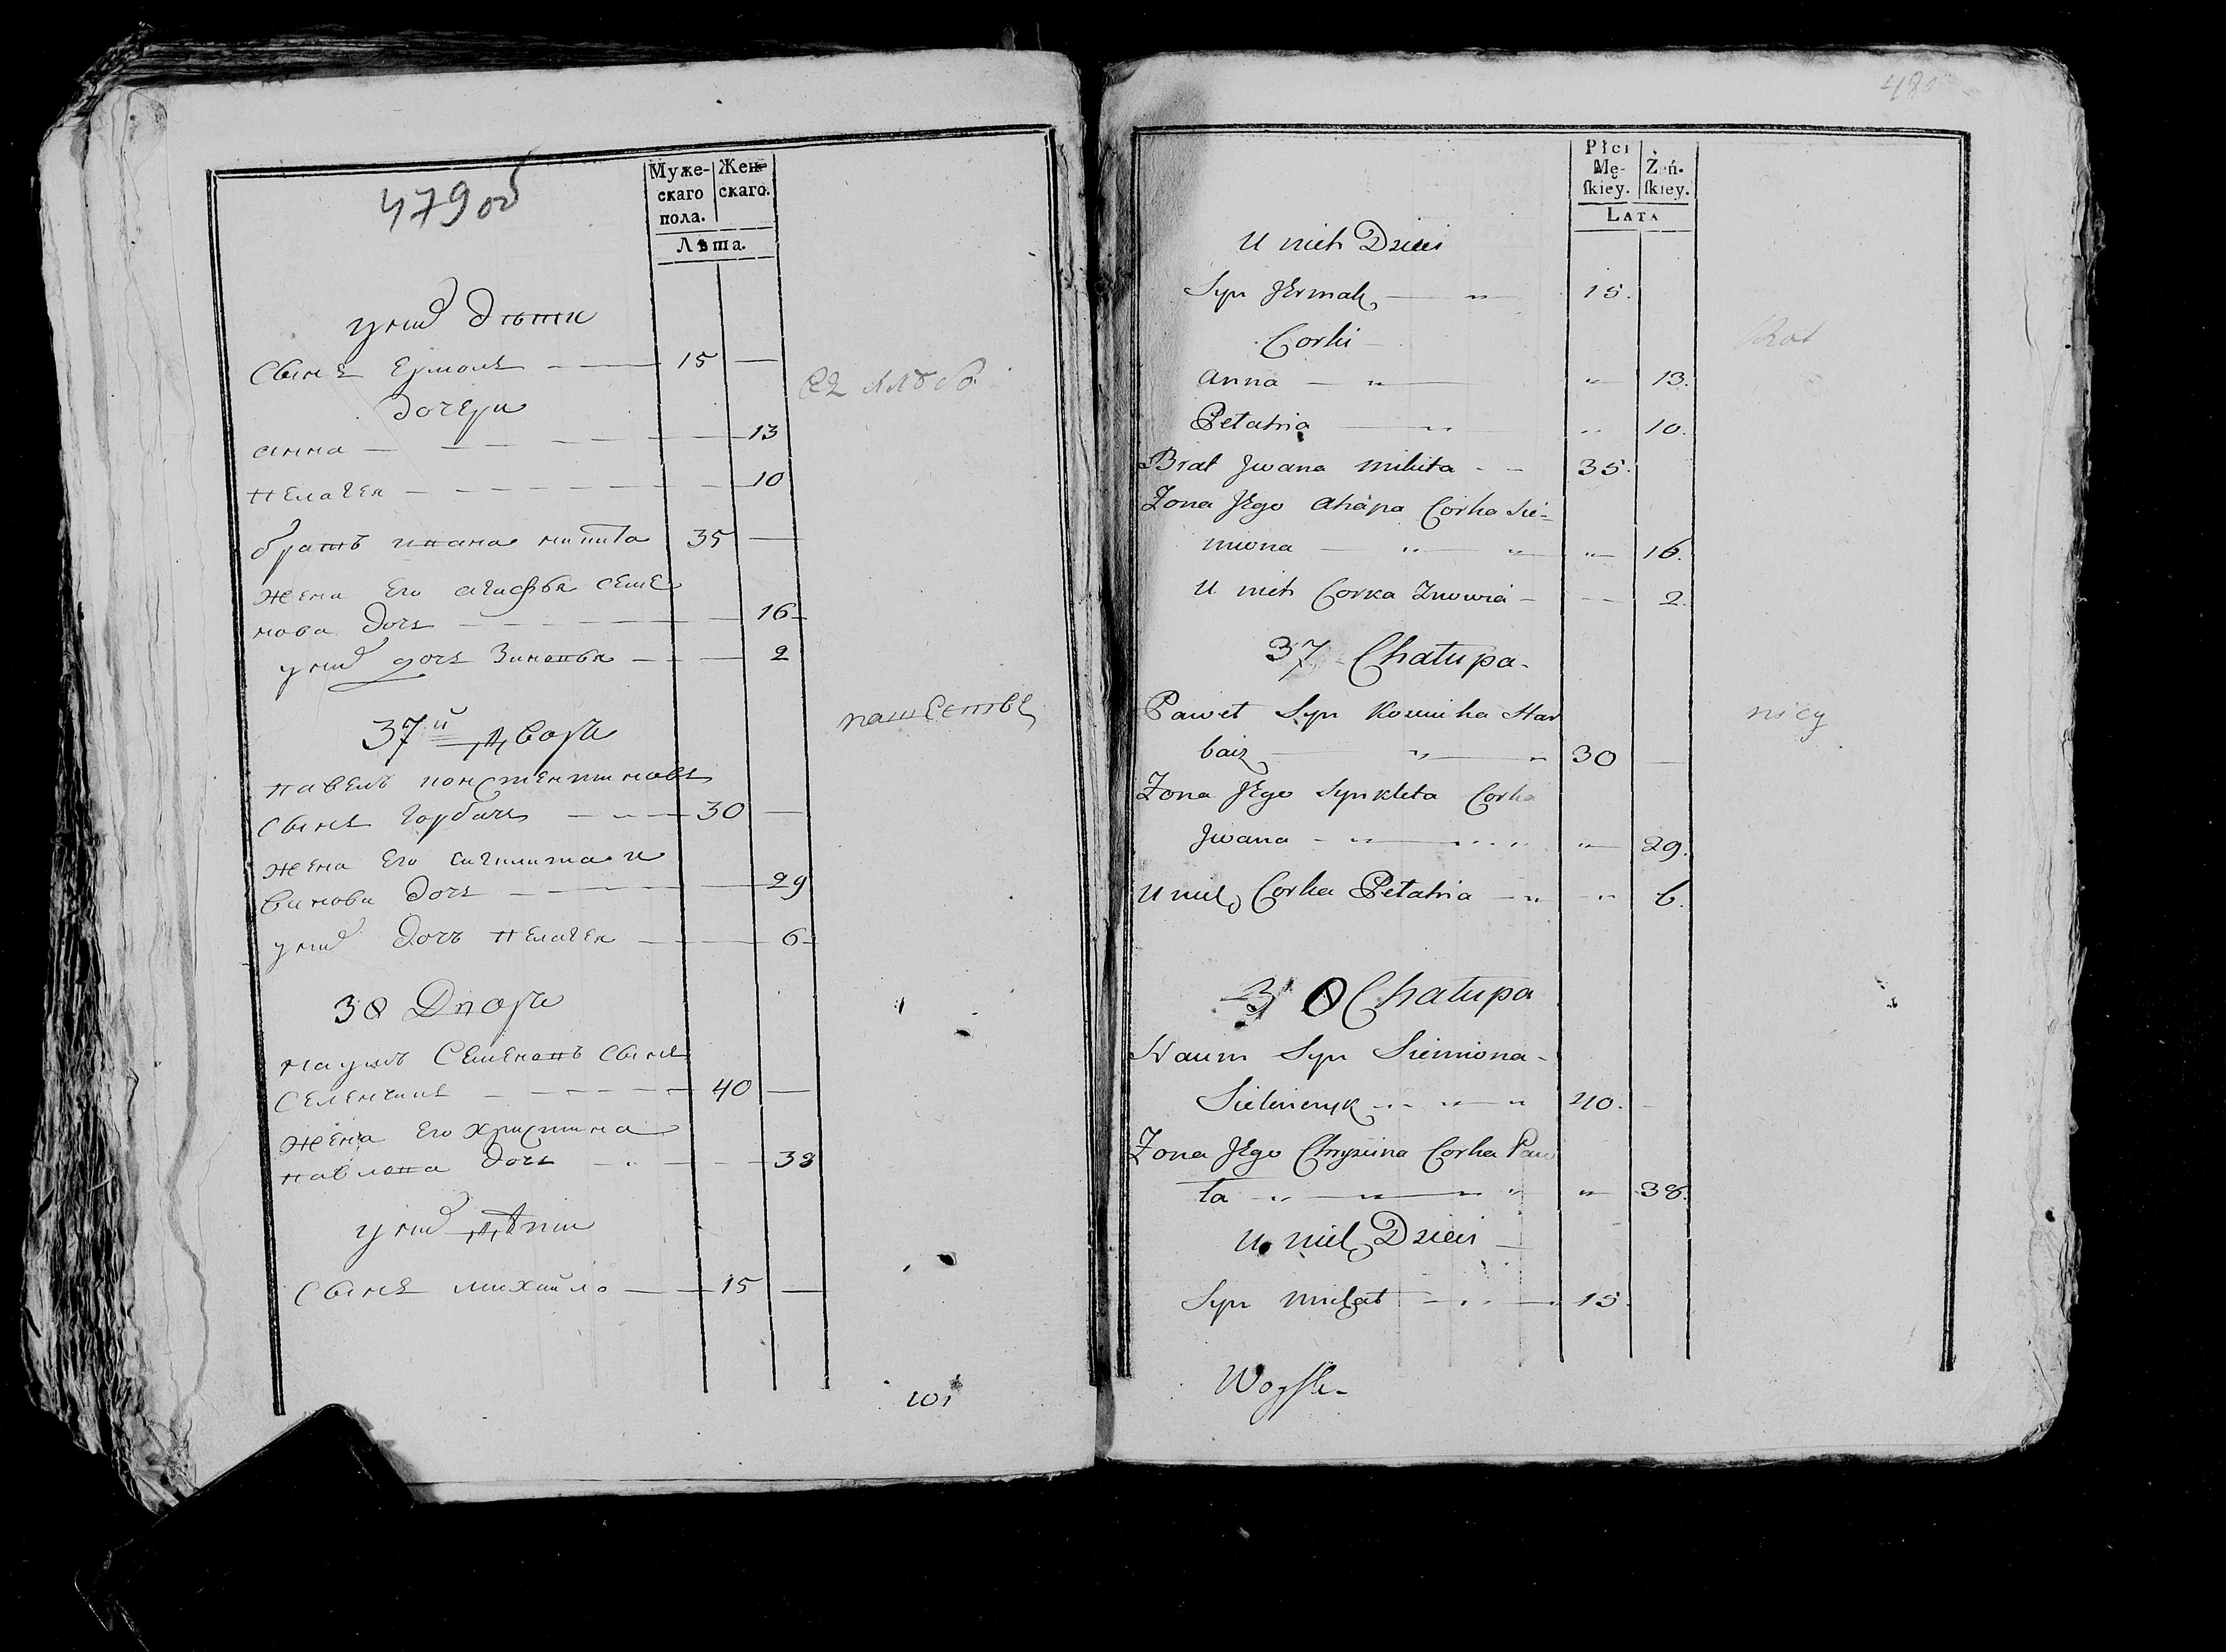 479 об
Муже-
скаго
пола.
Жен-
скаго.
Лѣта.
у них дѣти
сынъ Ермолъ 15
дочери
анна 13
пелагея 10
братъ ивана никита 35
жена Его агафья семе
нова дочь 16
у них дочь Зиновья 2
37й Дворъ
павелъ константиновъ
сынъ Горбачъ 30
жена Его сигклита и
ванова дочь 29
у них дочь пелагея 6
38 Дворъ
наумъ Семеновъ сынъ
Селенчикъ 40
жена Его христина
павлова дочь 38
у них дѣти
сынъ михайло 15
480
Płci
Mę-
ſkiey.
Żeń-
ſkiey.
Lata
U nich Dzieci
Syn JErmak 15.
Corki
Anna 13.
Pelahia 10.
Brat Jwana Mikita 35.
Zona JEgo Ahapa Corka Sie-
miona 16.
U nich Corka Znowia 2.
37 Chałupa
Paweł Syn Kouniha Har
bacz 30
Zona JEgo Synkleta Corka
Jwana 29.
U nich Corka Pelahia 6.
38 Chałupa
Naum Syn Siemiona
Sielenczyk 40.
Zona JEgo Chrysina Corka Paw
ła 38.
U nich Dzieci
Syn Michał 15.